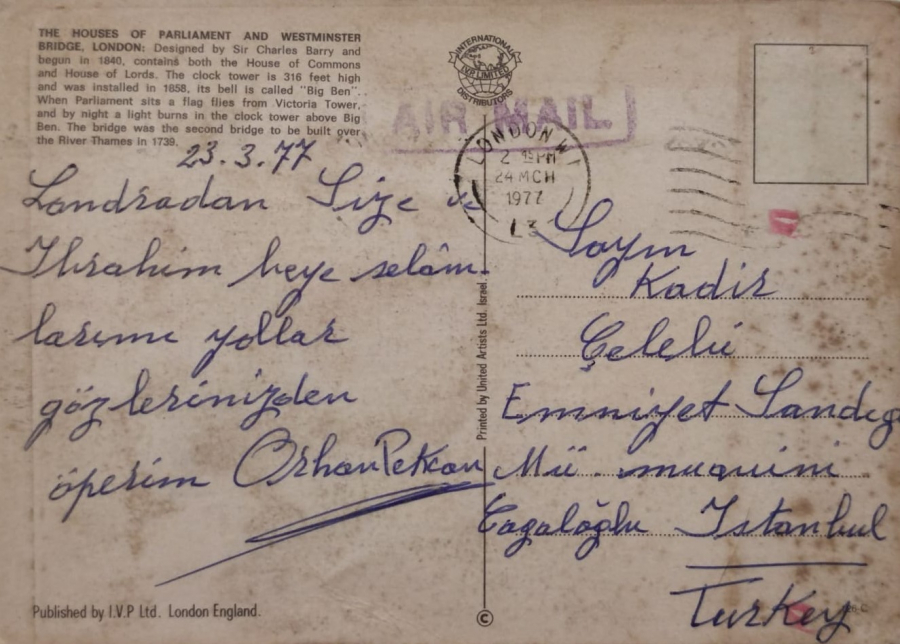 THE HOUSES OF PARLIAMENT AND WESTMINSTER
BRIDGE, LONDON: Designed by Sir Charles Barry and
begun in 1840, contains both the House of Commons
and House of Lords. The clock tower is 316 feet high
and was installed in 1858, its bell is called "Big Ben".
When Parliament sits a flag flies from Victoria Tower,
and by night a light burns in the clock tower above Big
Ben. The bridge was the second bridge to be built over
the River Thames in 1739.
INTERNATIONAL
I.V.P. LIMITED
DISTRIBUTORS
AIR MAIL
LONDON W1
2 PM
24 MCH
1977
23.3.77
Londradan Size ve
Ibrahim beye selâm-
larımı yollar
gözlerinizden
öperim Orhan Pekcan
Printed by United Artists Ltd. Israel.
Sayın
Kadir
Çelebi
Emniyet Sandığ
Mü. muavini
Cagaloğlu Istanbul
Turkey
Published by I.V.P Ltd. London England.
©